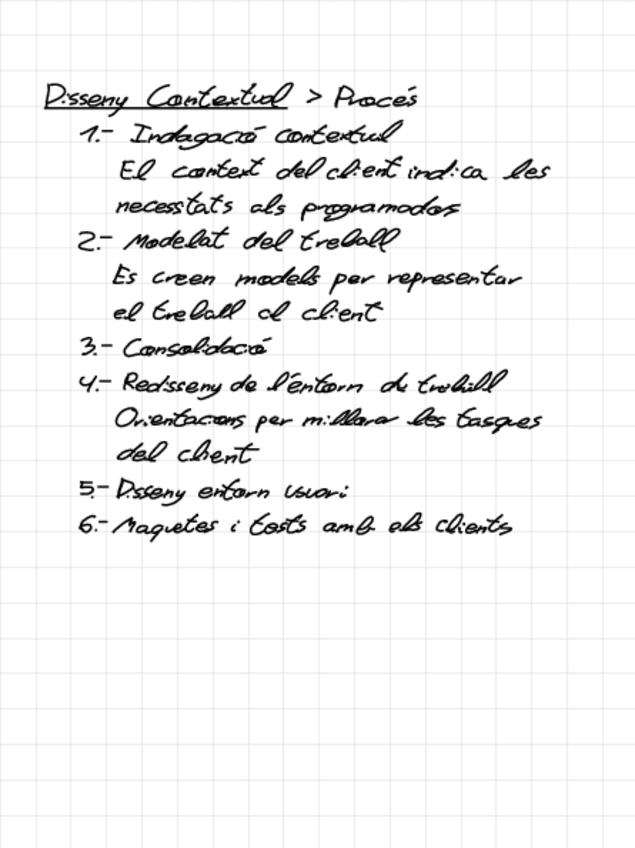 Disseny Contextual > Procés
1.- Indagació contextual
El context del client indica les
necessitats als programadors
2.- Modelat del treball
Es creen models per representar
el treball al client
3.- Consolidació
4.- Redisseny de l'entorn de treball
Orientacions per millorar les tasques
del client
5.- Disseny entorn usuari
6.- Maquetes i tests amb els clients